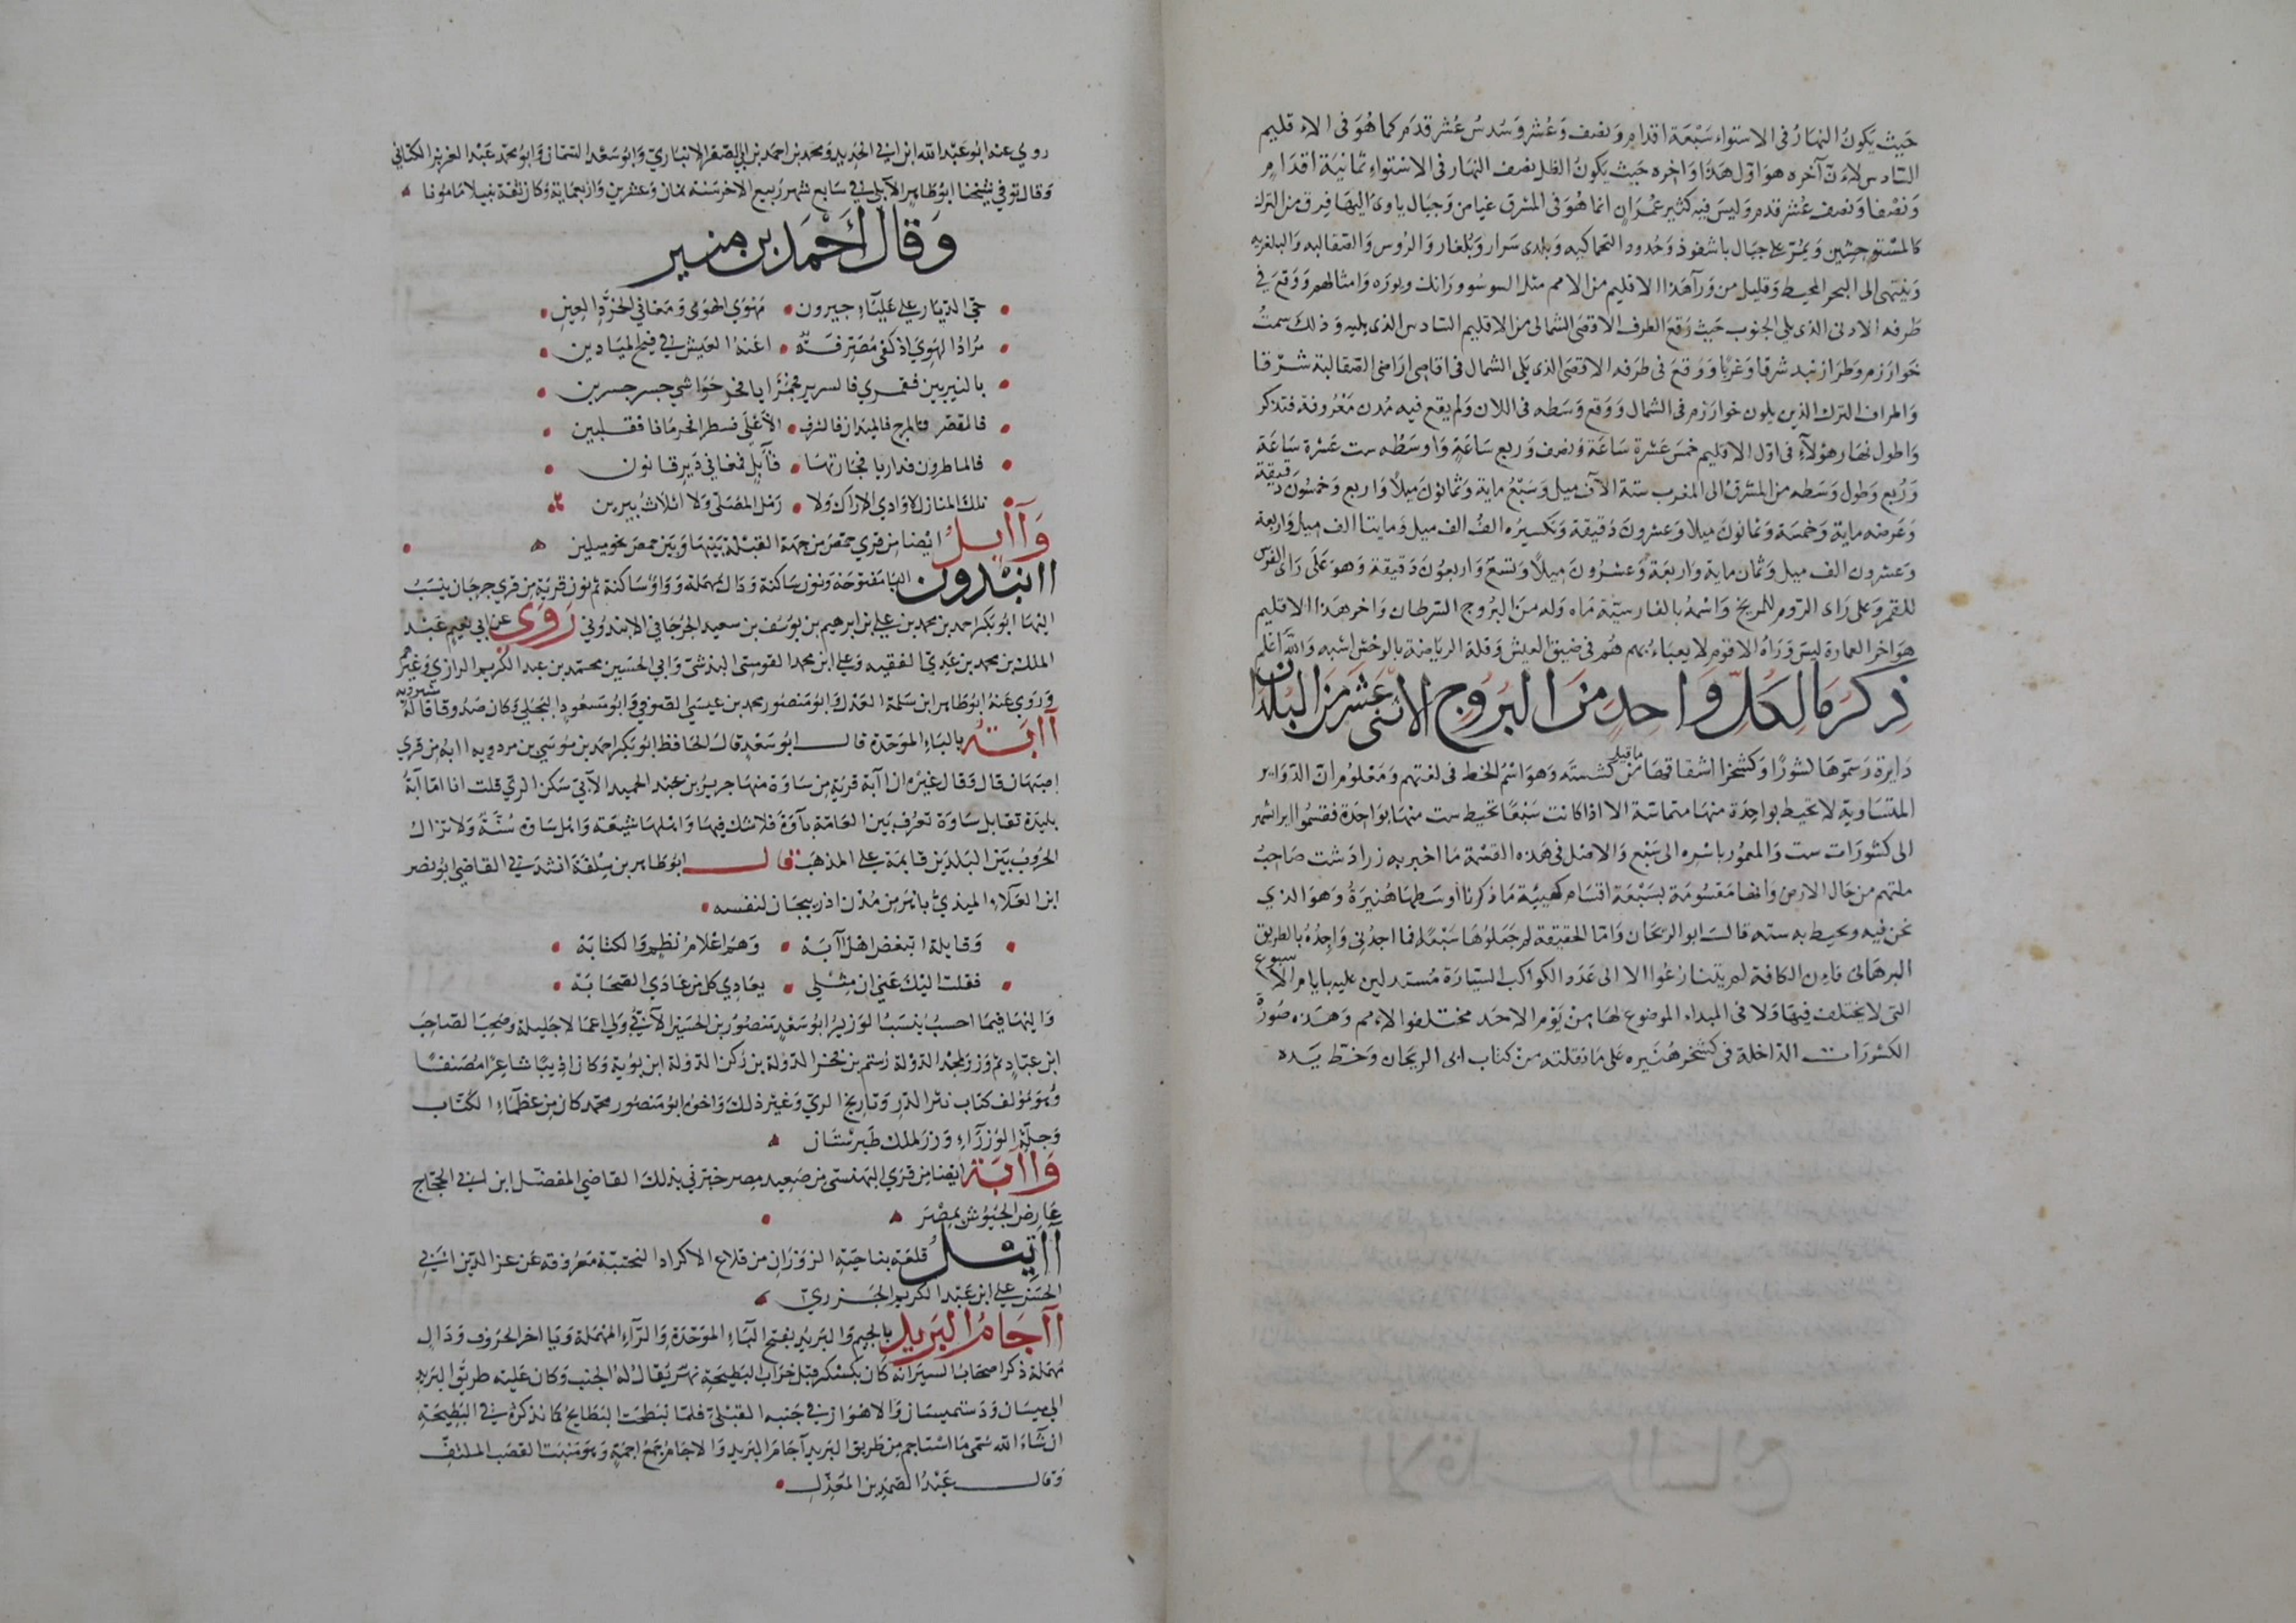 حيث يكون النهار في الاستواء سبعة اقدام ونصف وعشر وسدس عشر قدم كما هو في الاقليم
السادس لان آخره هو اول هذا واخره حيث يكون الظل نصف النهار في الاستواء ثمانية اقدام
ونصفا ونصف عشر قدم وليس فيه كثير عمران انما هو في المشرق غياض وجبال ياوي اليها فرق من الترك
كالمستوحشين ويمر على جبال باشغرد وحدود البجناكيه وبلدى سرار وبلغار والروس والصقالبه والبلغريه
وينتهى الى البحر المحيط وقليل من ورآ هذا الاقليم من الامم مثل ايسو وورانك ويوره وامثالهم ووقع في
طرفه الادنى الذي يلي الجنوب حيث وقع الطرف الاقصى الشمالى من الاقليم السادس الذي يليه وذلك سمت
خوارزم وطرازبند شرقا وغربا ووقع في طرفه الاقصى الذي يلى الشمال في اقاصى اراضى الصقالبة شرقا
واطراف الترك الذين يلون خوارزم في الشمال ووقع وسطه في اللان ولم يقع فيه مدن معروفة فتذكر
واطول نهار هؤلآء في اول الاقليم خمس عشرة ساعة ونصف وربع ساعة واوسطه ست عشرة ساعة
وربع وطول وسطه من المشرق الى المغرب ستة الآف ميل وسبع ماية وثمانون ميلا واربع وخمسون دقيقة
وعرضه ماية وخمسة وثمانون ميلا وعشرون دقيقة وتكسيره الف الف ميل ومايتا الف ميل واربعة
وعشرون الف ميل وثمان ماية واربعة وعشرون ميلا وتسع واربعون دقيقة وهو على راى الفرس
للقمر وعلى راى الروم للمريخ واسمه بالفارسية ماه وله من البروج السرطان واخر هذا الاقليم
هو اخر العمارة ليس وراه الا قوم لا يعباء بهم هم في ضيق العيش وقلة الرياضة بالوحش اشبه والله اعلم
ذكر ما لكل واحد من البروج الاثنى عشر من البلدان
دايرة وسموها كشورا وكشخر اشتقاقها ما قيل من كشسته وهو اسم الخط في لغتهم ومعلوم ان الدواير
المتساوية لا تحيط بواحدة منها متماسة الا اذا كانت سبعا تحيط ست منها بواحدة فقسموا ايرانشهر
الى كشورات ست والمعمور باسره الى سبع والاصل في هذه القسمة ما اخبر به زرادشت صاحب
ملتهم من حال الارض وانها مقسومة بسبعة اقسام كهيئة ما ذكرنا اوسطها هنيرة وهو الذي
نحن فيه ويحيط به سته قال ابو الريحان واما الحقيقة لم جعلوها سبعة فما اجدنى واجده بالطريق
البرهانى فان الكافة لم يتنازعوا الا الى عدد الكواكب السيارة مستدلين عليه بايام الاسبوع
التى لا يختلف فيها ولا في المبداء الموضوع لها من يوم الاحد مختلفوا الامم وهذه صورة
الكشورات الداخلة في كشخر هنيره على ما نقلته من كتاب ابى الريحان وخط يده
روي عنه ابو عبد الله ابن ابي الحديد ومحمد بن احمد بن ابي الصقر الانباري وابو سعد السمان وابو محمد عبد العزيز الكتاني
وقال توفي شيخنا ابو طاهر الآبلي في سابع شهر ربيع الاخر سنة ثمان وعشرين واربعماية وكان ثقة نبيلا مامونا
وقال احمد بن منير
حي الديار على علياء جيرون مهوى الهوى ومغاني الخرد العين
مراد لهوي اذ كفى مصرفة اعنة العيش في فيح الميادين
بالنيربين فمقرى فالسرير فخمرايا فجو حواشي جسر جسرين
فالقصر فالمرج فالميدان فالشرف الأعلى فسطرا فجرمانا فقلبين
فالماطرون فداريا فجارتها فآبل فمغاني دير قانون
تلك المنازل لا وادي الاراك ولا رمل المصلى ولا اثلاث يبرين
وآأبل ايضا من قري حمص من جهة القبلة بينها وبين حمص نحو ميلين
اابندون البا مفتوحة ونون ساكنة ودال مهملة وواو ساكنة ثم نون قرية من قري جرجان ينسب
اليها ابو بكر احمد بن محمد بن علي بن ابرهيم بن يوسف بن سعيد الجرجاني الابندوني روي عن ابي نعيم عبد
الملك بن محمد بن عدي الفقيه وعلى ابن محمد القومسي البذشي وابي الحسين محمد بن عبد الكريم الرازي وغيرهم
وروي عنه ابو طاهر ابن سلمة العدل وابو منصور محمد بن عيسى الصوفي وابو مسعود البجلي وكان صدوقا قاله شيرويه
اابة بالباء الموحدة قال ابو سعد قال الحافظ ابو بكر احمد بن موسى بن مردويه اابه من قري
اصبهان قال وقال غيره ان آبة قرية من ساوة منها جرير بن عبد الحميد الآبي سكن الري قلت انا اما آبة
بليدة تقابل ساوة تعرف بين العامة بآوة فلا شك فيها واهلها شيعة واهل ساوه سنة ولا تزال
الحروب بين البلدين قايمة على المذهب قال ابو طاهر بن سلفة انشدني القاضي ابو نصر
ابن العلاء الميذي باهر من مدن اذربيجان لنفسه
وقايلة اتبغض اهل آبة وهم اعلام نظم والكتابة
فقلت اليك عني ان مثلي يعادي كل من عادي الصحابة
واليها فيما احسب ينسب الوزير ابو سعد منصور بن الحسين الآبي ولي اعمالا جليلة وصحب الصاحب
ابن عباد ثم وزر لمجد الدولة رستم بن فخر الدولة بن ركن الدولة ابن بوية وكان اديبا شاعرا مصنفا
وهو مؤلف كتاب نثر الدر وتاريخ الري وغير ذلك واخوه ابو منصور محمد كان من عظماء الكتاب
وجلة الوزراء وزر لملك طبرستان
واابة ايضا من قري البهنسى من صعيد مصر خبرني بذلك القاضي المفضل ابن ابي الحجاج
عارض الجيوش بمصر
ااتيل قلعة بناحية الزوزان من قلاع الاكراد البختية معروفة عن عز الدين ابي
الحسن علي ابن عبد الكريم الجزري
اآجام البريد بالجيم والبريد بفتح الباء الموحدة والراء المهملة ويا اخر الحروف ودال
مهملة ذكر اصحاب السير انه كان بكسكر قبل خراب البطيحة نهر يقال له الجنب وكان عليه طريق البريد
الى ميسان ودستميسان والاهواز في جنبه القبلي فلما تبطحت البطايح كما نذكره في البطيحة
ان شاء الله سمى ما استاجم من طريق البريد آجام البريد والاجام جمع اجمة وهو منبت القصب الملتف
وقال عبد الصمد بن المعذل